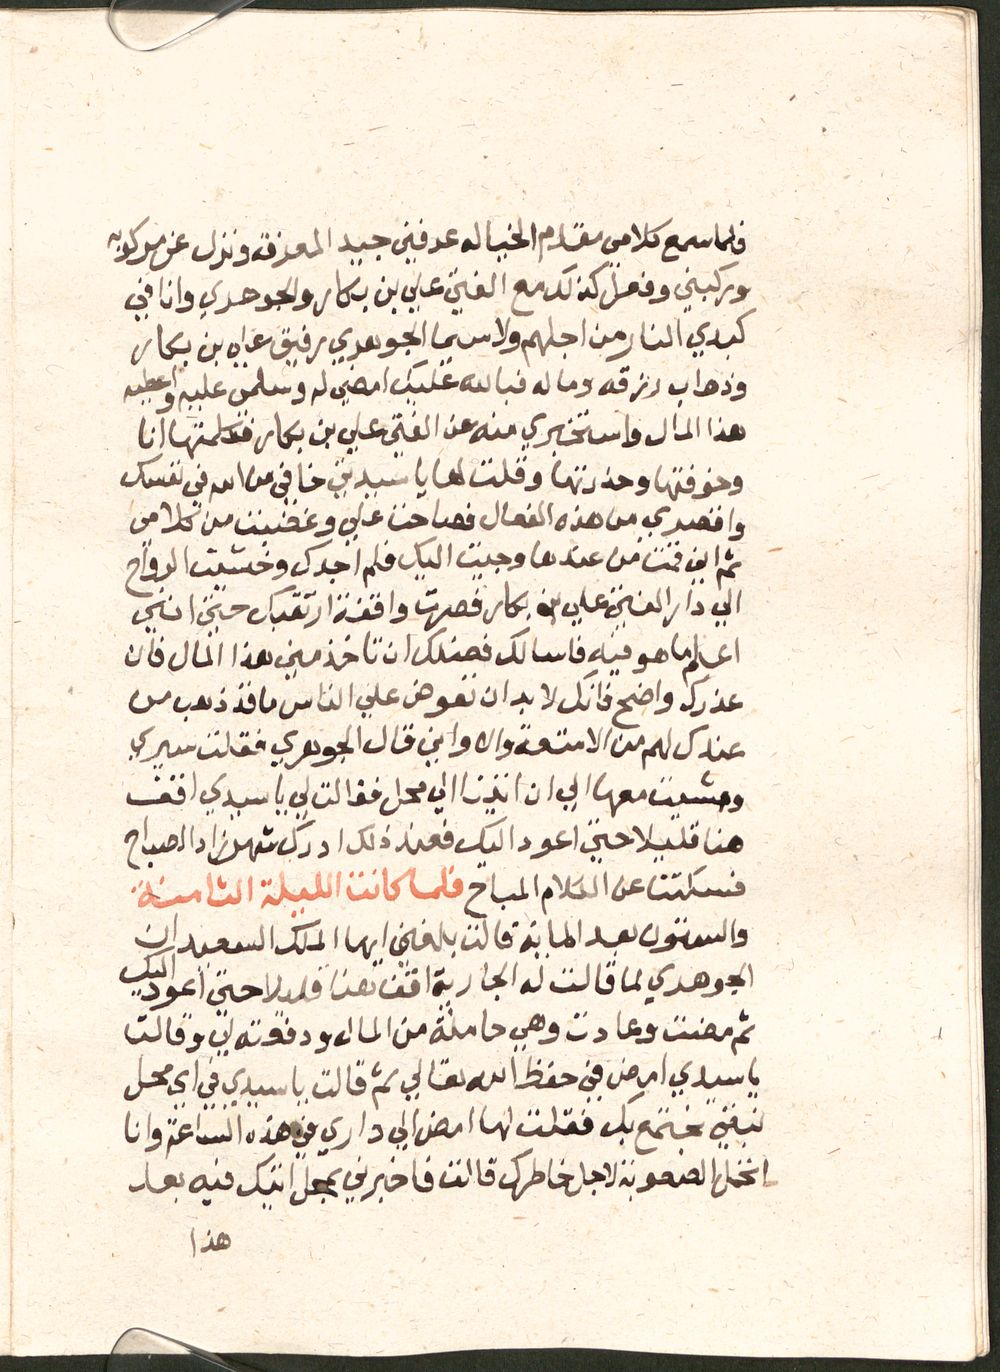 فلما سمع كلامي مقدام الخياله عرفني جيد المعرفة ونزل عن مركوبه
وركبني وفعل كذلك مع الفتي علي بن بكار والجوهري وانا في
كبدي النار من اجلهم ولا سيما الجوهري رفيق علي بن بكار
وذهاب رزقه وماله فبالله عليك امضي له وسلمي عليه واعطيه
هذا المال واستخبري منه عن الفتي علي بن بكار فكلمتها انا
وخوفتها وحذرتها وقلت لها يا سيدتي خافي من الله في نفسك
واقصري من هذه الفعال فصاحت علي وغضبت من كلامي
ثم اني قمت من عندها وجيت اليك فلم اجدك وخشيت الرواح
الي دار الفتي علي بن بكار فصرت واقفة ارتقبك حتي انني
اعلم ما هو فيه فاسالك فضلك ان تاخذ مني هذا المال فان
عذرك واضح فانك لا بد ان تعوض علي الناس ما قد ذهب من
عندك لهم من الامتعة والاواني قال الجوهري فقلت سيري
ومشيت معها الي ان اتينا الي محل فقالت لي يا سيدي اقف
هنا قليلا حتي اعود اليك فعند ذلك ادرك شهرزاد الصباح
فسكتت عن الكلام المباح فلما كانت الليلة الثامنة
والستون بعد الماية قالت بلغني ايها الملك السعيد ان
الجوهري لما قالت له الجارية اقف هنا قليلا حتي اعود اليك
ثم مضت وعادت وهي حاملة من المال ودفعته لي وقالت
يا سيدي امض في حفظ الله تعالي ثم قالت يا سيدي في اي محل
نبقي نجتمع بك فقلت لها امض الي داري في هذه الساعة وانا
اتحمل الصعوبة لاجل خاطرك قالت فاخبرني بمحل اتيك فيه بعد
هذا